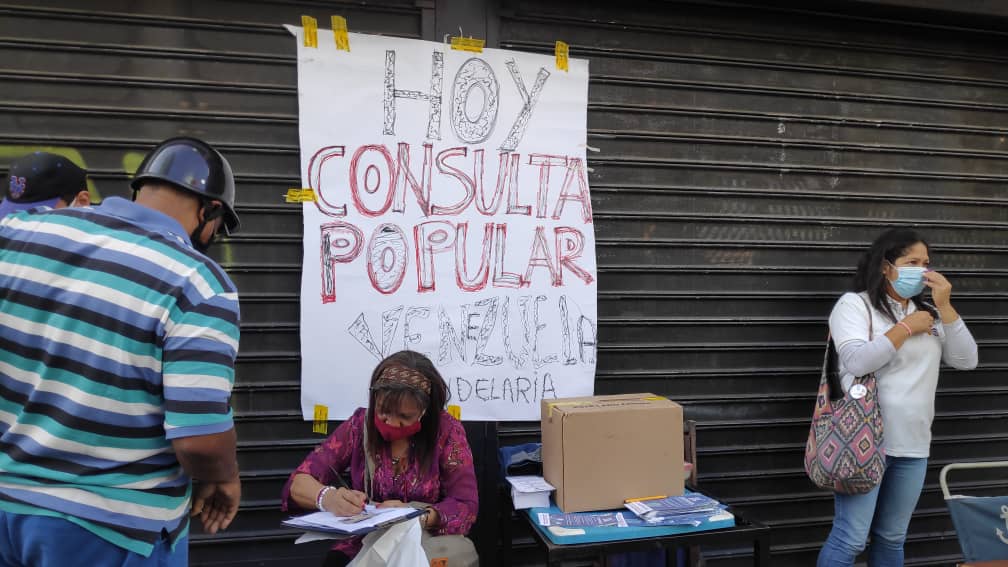 HOY
CONSULTA
POPULAR
VENEZUELA
DELARIA